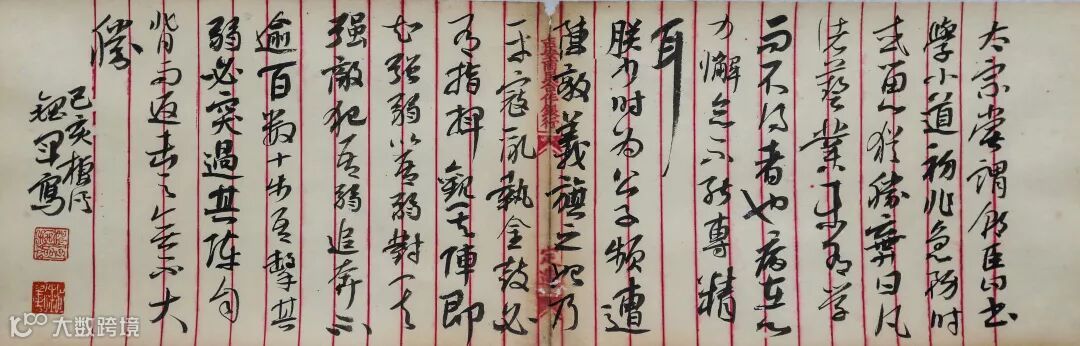 太宗嘗謂朝臣曰書
學小道初非急務時
或留心猶勝棄日凡
諸藝業未有學
而不得者也病在心
力懈怠不能專精
耳
朕少时为公子頻遭
陣敵義旗之始乃
平寇亂執金鼓必
有指揮觀其陣即
知强弱以吾弱對其
强敵犯吾弱追奔不
逾百數十步吾擊其
弱必突過其陣自
背而返击之無不大
勝
己亥桂月
军寫
大数跨境